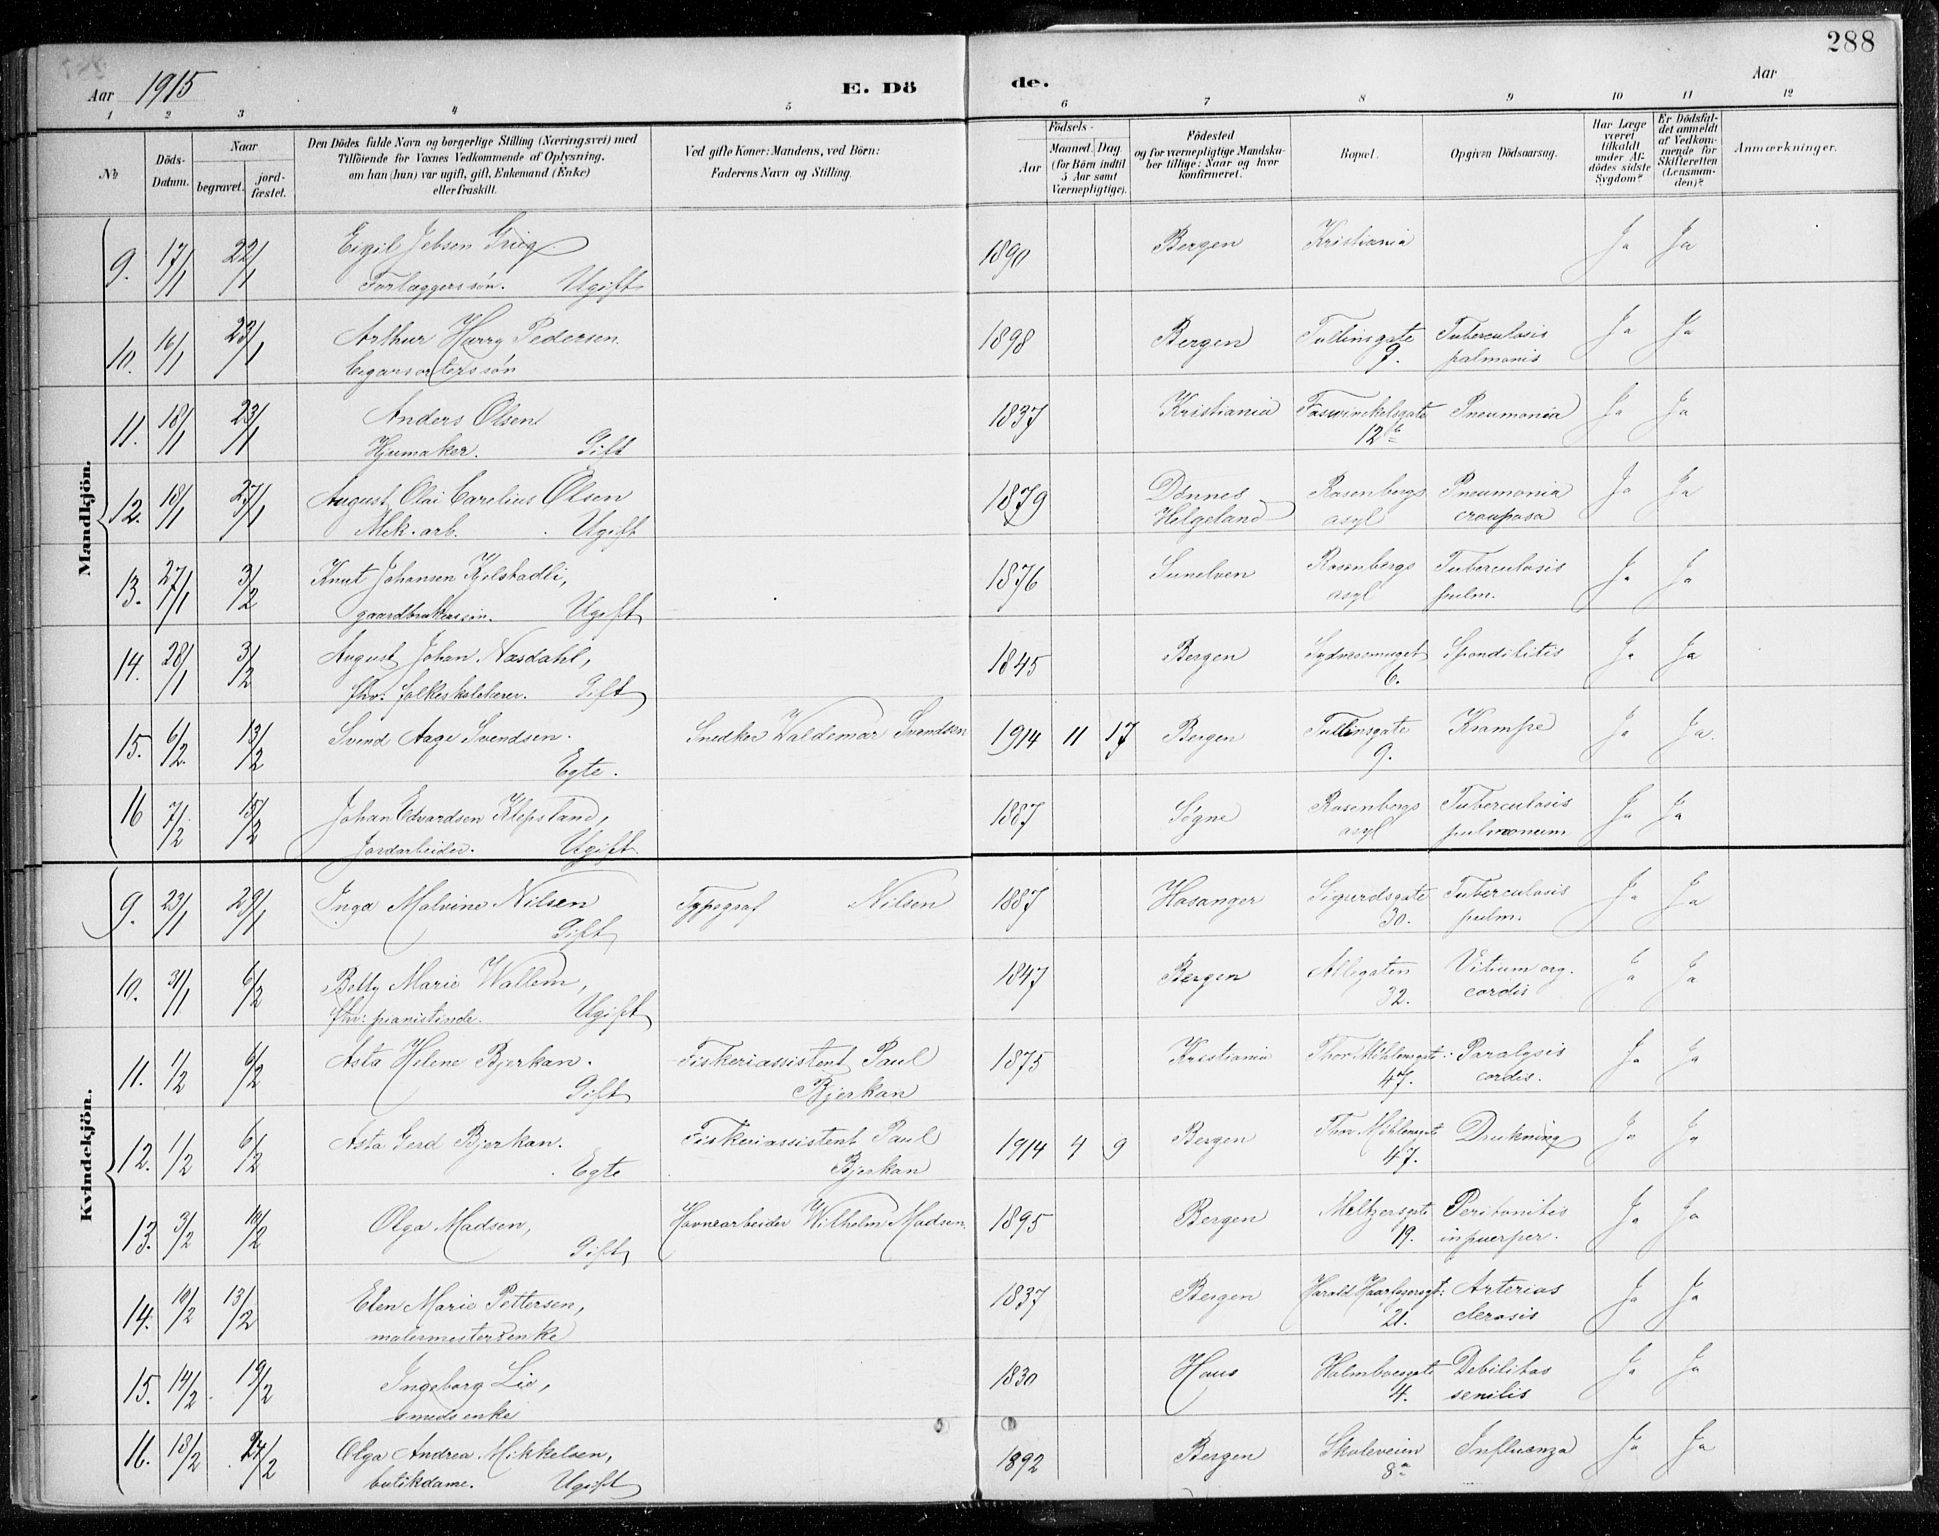 288
Aar 1915 E. Dö de. Aar
1 2 3 4 5 6 7 8 9 10 11 12
№
Döds-Datum.
Naar
begravet.
jord-fæstet.
Den Dödes fulde Navn og borgerlige Stilling (Næringsvei) med
Tilföiende for Voxnes Vedkommende af Oplysning,
om han (hun) var ugift, gift, Enkemand (Enke)
eller fraskilt.
Ved gifte Koner: Mandens, ved Börn:
Faderens Navn og Stilling.
Födsels-
Aar
Maaned. Dag
(for Börn indtil
5 Aar samt
Værnepligtige).
Födested
og for værnepligtige Mandska-
ber tillige: Naar og hvor
konfirmeret.
Bopæl.
Opgiven Dödsaarsag.
Har Læge
været
tilkaldt
under Af-
dödes sidste
Sygdom?
Er Dödsfal-
det anmeldt
af Vedkom-
mende for
Skifteretten
(Lensman-
den)?
Anmærkninger.
Mandkjön.
9. 17/1 22/1 Eigil Jebsen Grieg 1890 Bergen Kristiania Ja Ja
Forlæggerssøn. Ugift
10. 16/1 23/1 Arthur Harry Pedersen 1898 Bergen Tullinsgate Tuberculosis Ja Ja
Cigarsorterssøn 9. pulmonis
11. 18/1 23/1 Anders Olsen 1837 Kristiania Foswinckelsgate Pneumonia Ja Ja
Hjumaker. Gift 12b
12. 18/1 27/1 August Olai Carelius Olsen 1879 Dønnes Rosenbergs Pneumonia Ja Ja
Mek. arb. Ugift Helgeland asyl crouposa
13. 27/1 3/2 Knut Johansen Kjelstadli, 1876 Sunelven Rosenbergs Tuberculosis Ja Ja
gaardbrukerssøn. Ugift asyl pulm.
14. 28/1 3/2 August Johan Næsdahl, 1845 Bergen Spondilitis Ja Ja
fhv. folkeskolelærer. Gift 6.
15. 6/2 13/2 Svend Aage Svendsen. Snedker Waldemar Svendsen 1914 11 17 Bergen Tullinsgate Krampe Ja Ja.
Egte. 9.
16 7/2 15/2 Johan Edvardsen Klepsland, 1887 Søgne Rosenbergs Tuberculosis Ja Ja
Jordarbeider. Ugift. asyl pulmonum
Kvindekjön.
9. 23/1 29/1 Inga Malvine Nilsen Typograf Nilsen 1887 Hasanger Sigurdsgate Tuberculosis Ja Ja
Gift 30. pulm.
10. 31/1 6/2 Betty Marie Wallem, 1847 Bergen Allegaten Vitium org. Ja Ja
fhv: pianistinde. Ugift 32. cordis
11. 1/2 6/2 Asta Helene Bjerkan. Fiskeriassistent Paul 1875 Kristiania Thor Møhlensgate Paralysis Ja Ja
Gift Bjerkan 47. cordis.
12. 1/2 6/2 Asta Gerd Bjerkan. Fiskeriassistent Paul 1914 7 9 Bergen Thor Møhlensgate Drukning Ja Ja
Egte Bjerkan 47.
13. 3/2 10/2 Olga Madsen, Havnearbeider Wilhelm Madsen 1895 Bergen Meltzersgate Peritonitis Ja Ja
Gift 19. in puerper.
14. 10/2 13/2 Elen Marie Pettersen, 1837 Bergen Harald Haarfagersgt: Arterios Ja Ja
malermesterenke 21. clerosis
15. 14/2 19/2 Ingeborg Lie, 1830 Haus Holmboesgate Debilitas Ja Ja
smedsenke 4. senilis
16. 18/2 24/2 Olga Andrea Mikkelsen, 1892 Bergen Skoleveien Influenza Ja Ja
butikdame. Ugift 8a